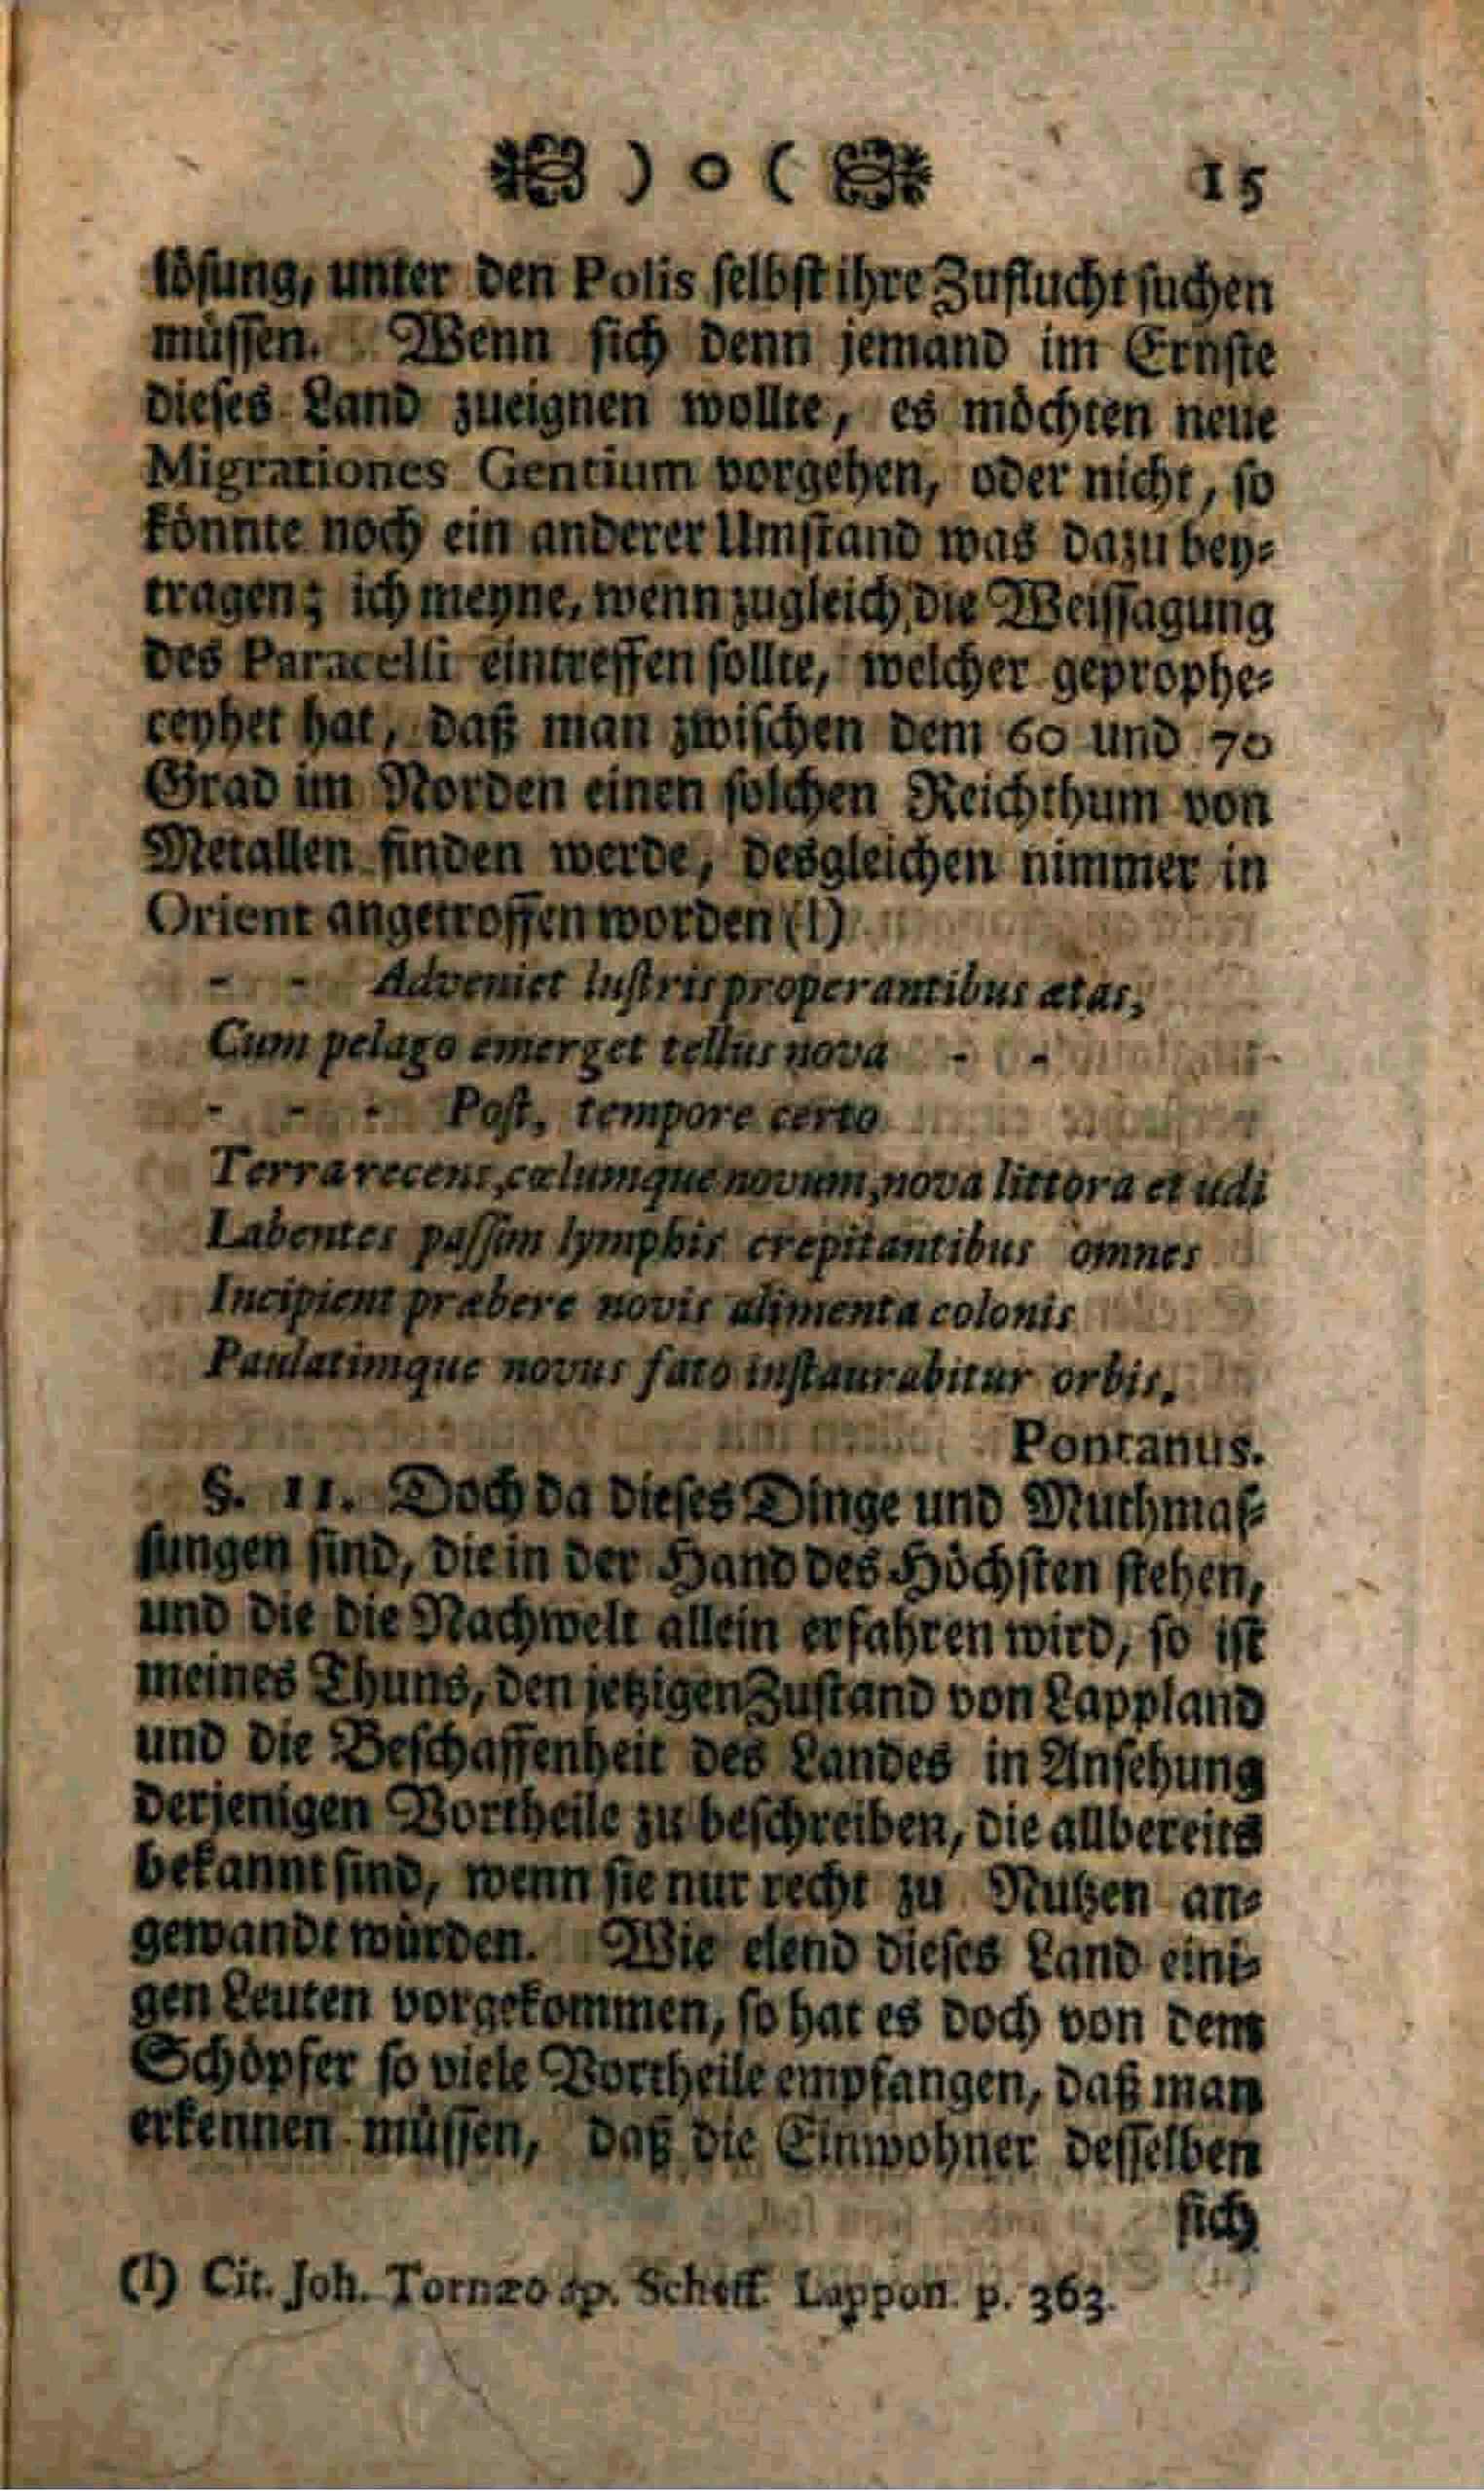 ) o ( 15
lösung, unter den Polis selbst ihre Zuflucht suchen
müssen. Wenn sich denn jemand im Ernste
dieses Land zueignen wollte, es möchten neue
Migrationes Gentium vorgehen, oder nicht, so
könnte noch ein anderer Umstand was dazu bey-
tragen; ich meyne, wenn zugleich die Weissagung
des Paracelsi eintreffen sollte, welcher geprophe-
ceyhet hat, daß man zwischen dem 60 und 70
Grad im Norden einen solchen Reichthum von
Metallen finden werde, desgleichen nimmer in
Orient angetroffen worden (l)
- - Adveniet lustris properantibus ætas,
Cum pelago emerget tellus nova - -
- - - Post, tempore certo
Terra recens, cœlumque novum, nova littora et udi
Labentes passim lymphis crepitantibus omnes
Incipient præbere novis alimenta colonis
Paulatimque novus fato instaurabitur orbis.
Pontanus.
§. 11. Doch da dieses Dinge und Muthmas-
sungen sind, die in der Hand des Höchsten stehen,
und die die Nachwelt allein erfahren wird, so ist
meines Thuns, den jetzigen Zustand von Lappland
und die Beschaffenheit des Landes in Ansehung
derjenigen Vortheile zu beschreiben, die allbereits
bekannt sind, wenn sie nur recht zu Nutzen an-
gewandt würden. Wie elend dieses Land eini-
gen Leuten vorgekommen, so hat es doch von dem
Schöpfer so viele Vortheile empfangen, daß man
erkennen müssen, daß die Einwohner desselben
sich
(l) Cit. Joh. Tornæo ap. Scheff. Lappon. p. 363.